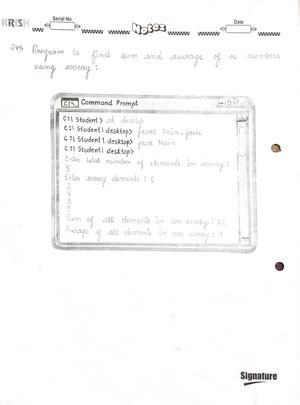 KRISH
Serial No.
Notes
Date
Program to find sum and average of n numbers
using array :
C:\. Command Prompt
C:\ Student > cd desktop
C:\ Student\ desktop> javac Main.java
C:\ Student\ desktop> java Main
C:\ Student\ desktop>
Enter total number of elements in array :
5
Enter array elements :
2
5
Sum of all elements in an array :
Average of all elements in an array :
Signature